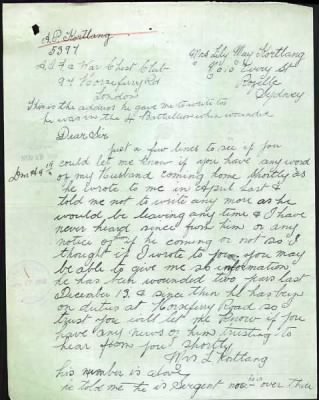 A.P. Kortlang
5397
A.I.F's War Chest Club
97 Horseferry Rd
London
Mrs Lily May Kortlang
St
Rozelle
Sydney
This is the address he gave me to write to
he was in the 4 Battallion when wounded
Dear Sir
Just a few lines to see if you
could let me know if you have any word
of my husband coming home shortly as
he wrote to me in April last &
told me not to write any more as he
would be leaving any time & I have
never heard since from him or any
notice of if he coming or not so I
thought if I wrote to you, you may
be able to give me so information,
he has been wounded two years last
December 13. & since then he has been
on duties at Horseferry Road. so I
trust you will let me know if you
have any news of him trusting to
hear from you shortly
Mrs L Kortlang
his number is above
he told me he is Sergent now over there